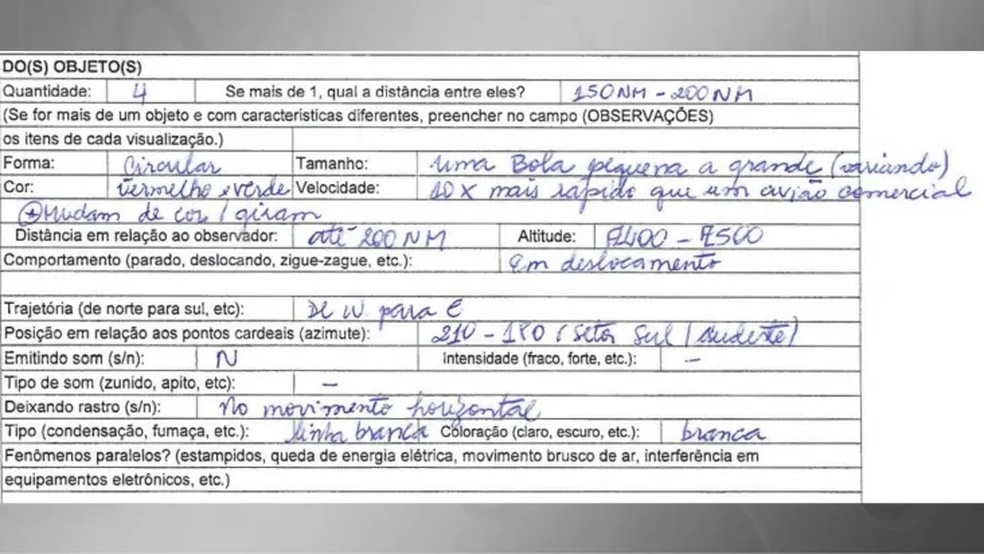 DO(S) OBJETO(S)
Quantidade: 4 Se mais de 1, qual a distância entre eles? 150NM - 200NM
(Se for mais de um objeto e com caracteristicas diferentes, preencher no campo (OBSERVAÇÕES)
os itens de cada visualização.)
Forma: Circular Tamanho: uma Bola pequena a grande (variando)
Cor: Vermelho e verde Velocidade: 10 x mais rápido que um avião comercial
+ Mudam de cor / giram
Distância em relação ao observador: até 200 NM Altitude: -
Comportamento (parado, deslocando, zigue-zague, etc.): Em deslocamento
Trajetória (de norte para sul, etc): De W para E
Posição em relação aos pontos cardeais (azimute): 210 - 180 (setor sul / sudeste)
Emitindo som (s/n): N Intensidade (fraco, forte, etc.): -
Tipo de som (zunido, apito, etc): -
Deixando rastro (s/n): No movimento horizontal
Tipo (condensação, fumaça, etc.): linha branca Coloração (claro, escuro, etc.): branca
Fenômenos paralelos? (estampidos, queda de energia elétrica, movimento brusco de ar, interferência em
equipamentos eletrônicos, etc.)